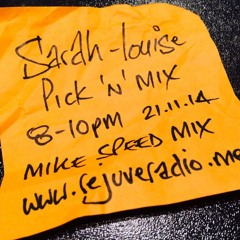 Sarah-louise
Pick 'n' Mix
8-10pm 21.11.14
MIKE SPEED MIX
www.rejuveradio.me